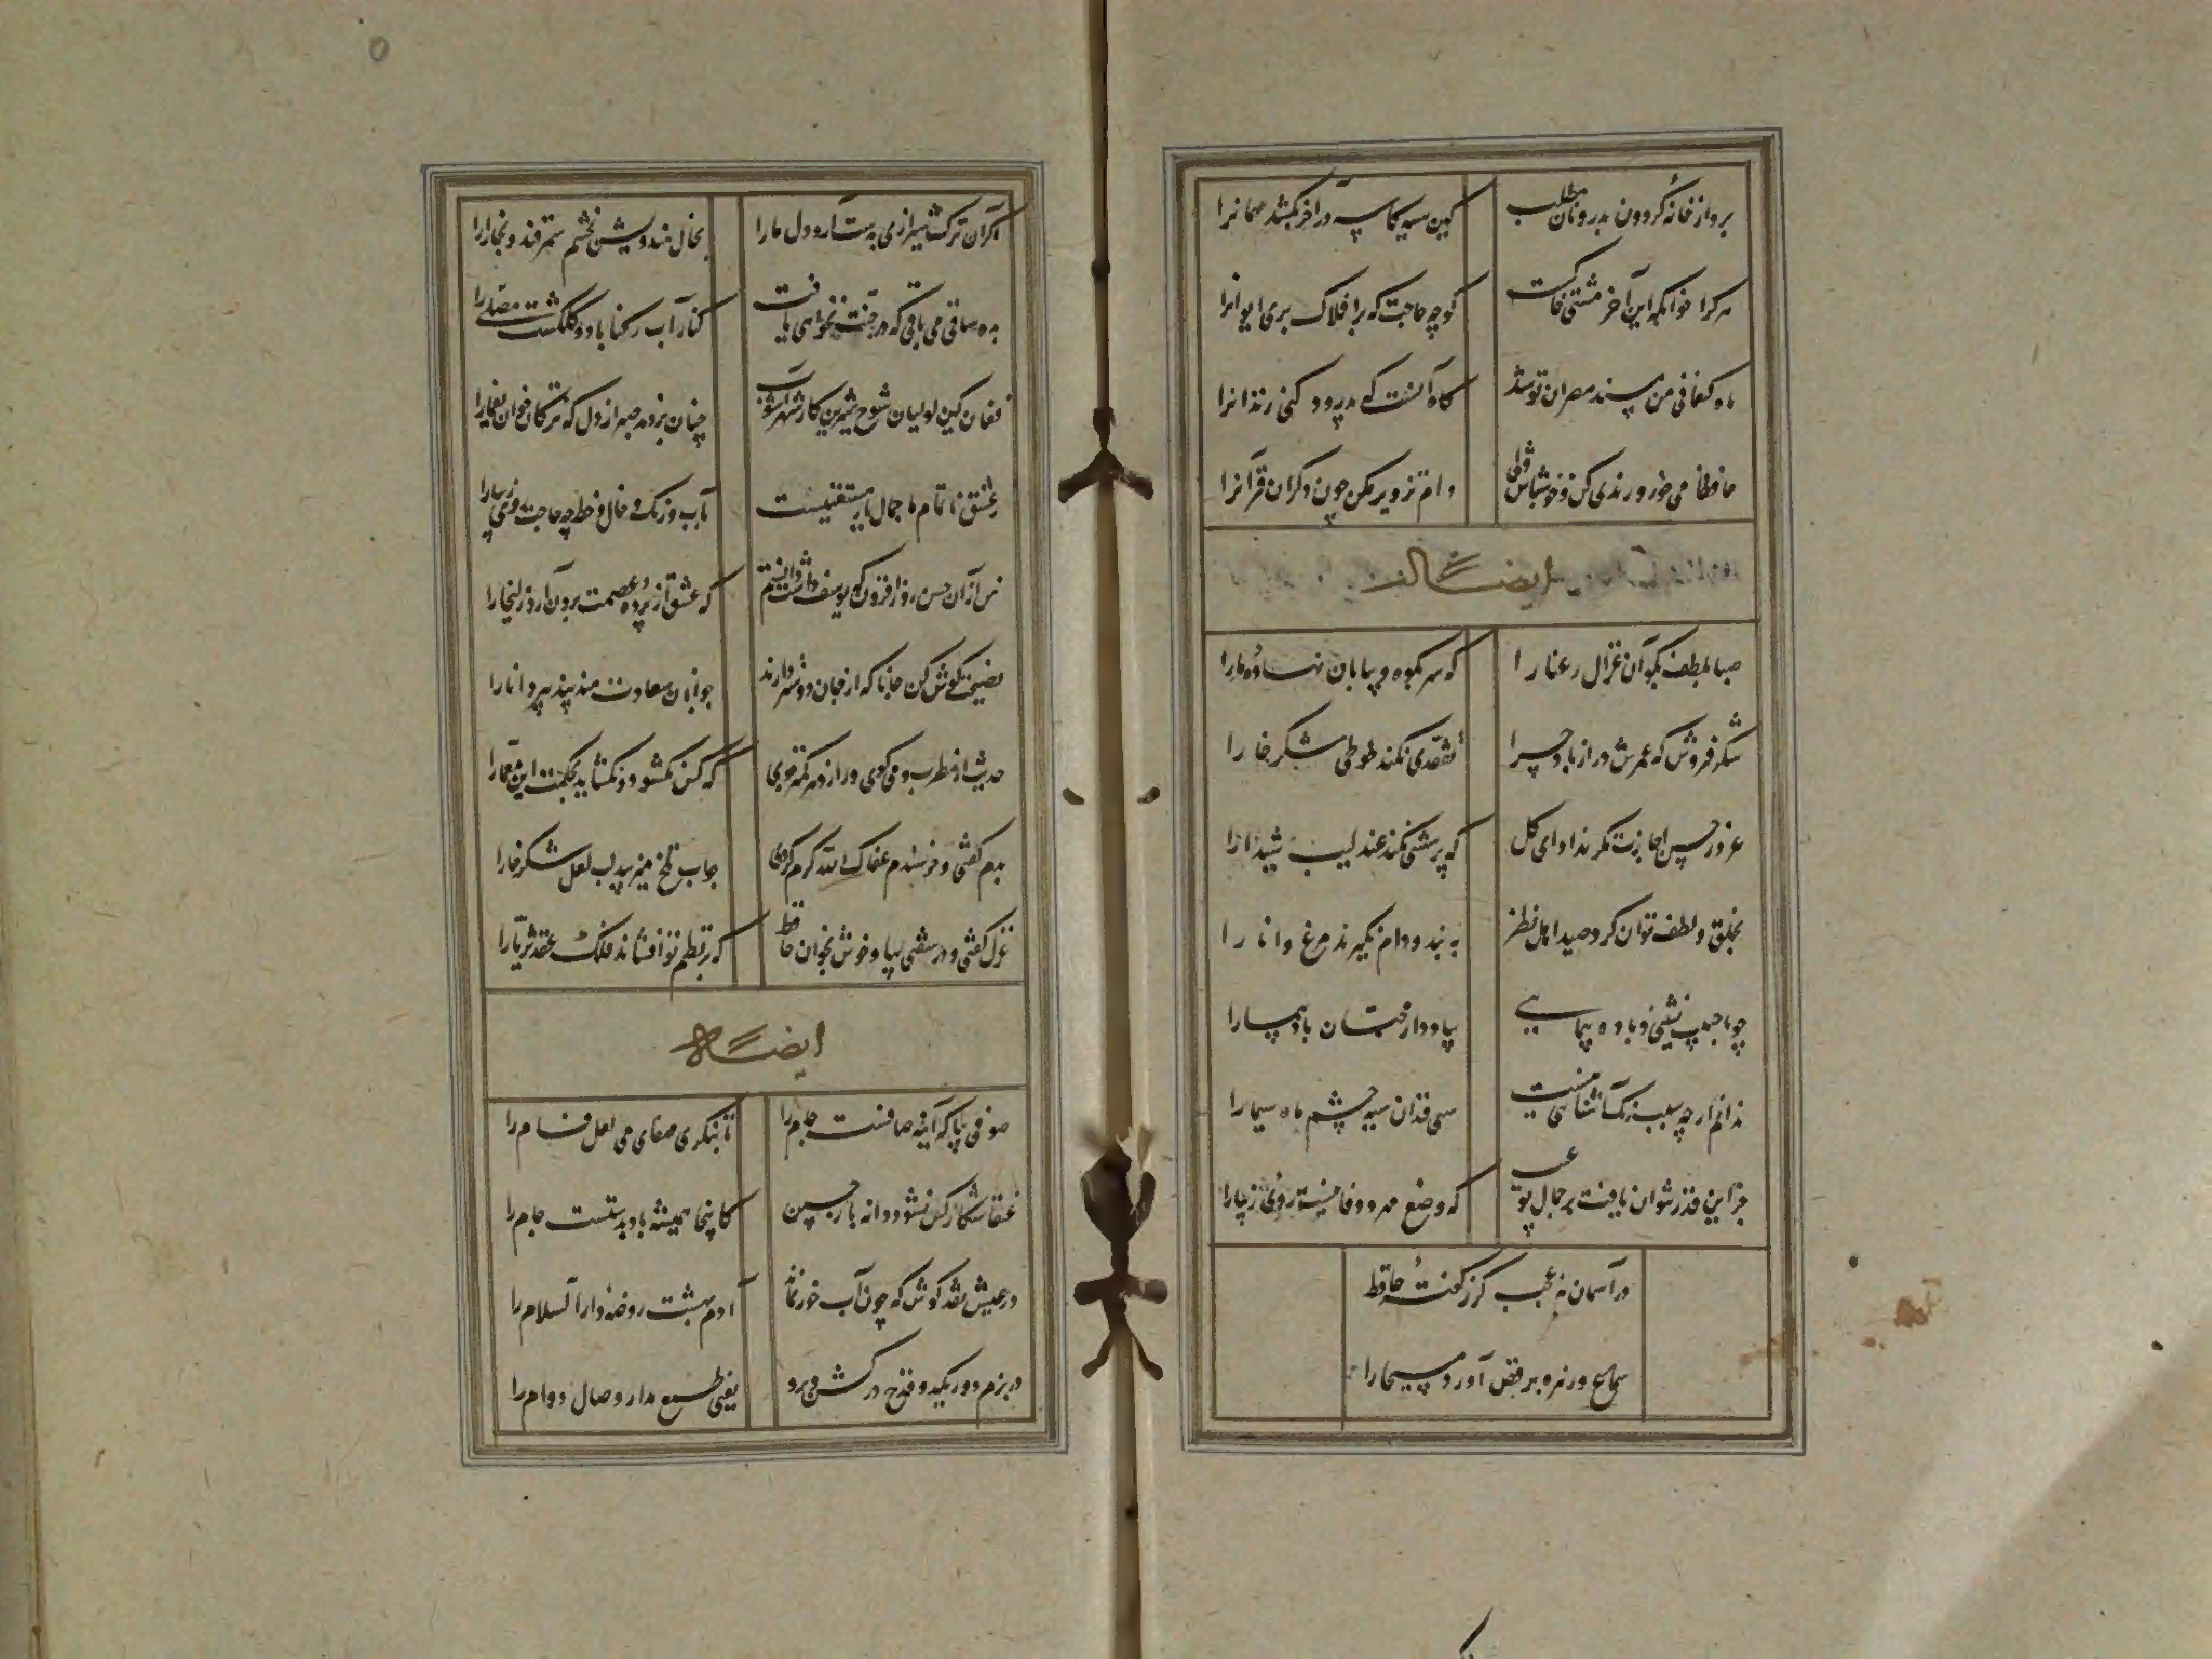 برو از خانه گردون بدر و نان مطلب کین سیه کاسه در آخر بکشد مهمانرا
هر کرا خوابگه این آخر مشتی خاکست گو چه حاجت که بر افلاک بری ایوانرا
ماه کنعانی من مسند مصر ان تو شد گاه آنست که بدرود کنی زندانرا
حافظا می خور و رندی کن و خوشباش ولی دام تزویر مکن چون دگران قرآنرا
ایضا
صبا بلطف بگو آن غزال رعنا را که سر بکوه و بیابان تو داده مارا
شکر فروش که عمرش دراز باد چرا تفقدی نکند طوطی شکرخا را
غرور حسن اجازت مگر نداد ای گل که پرسشی نکند عندلیب شیدا را
بخلق و لطف توان کرد صید اهل نظر به بند و دام نگیرند مرغ دانا را
چو با حبیب نشینی و باده پیمایی بیاد دار محبان باد پیمارا
ندانم از چه سبب رنگ آشنائی نیست سهی قدان سیه چشم ماه سیما را
جز این قدر نتوان یافت بر جمال تو عیب که وضع مهر و وفا نیست روی زیبا را
در آسمان نه عجب گر ز گفته حافظ
سماع زهره برقص آورد مسیحا را
اگر آن ترک شیرازی بدست آرد دل مارا بخال هندویش بخشم سمرقند و بخارا را
بده ساقی می باقی که در جنت نخواهی یافت کنار آب رکنا باد و گلگشت مصلی را
فغان کین لولیان شوخ شیرین کار شهر آشوب چنان بردند صبر از دل که ترکان خوان یغما را
ز عشق ناتمام ما جمال یار مستغنیست بآب و رنگ و خال و خط چه حاجت روی زیبا را
من از آن حسن روز افزون که یوسف داشت دانستم که عشق از پرده عصمت برون آرد زلیخا را
نصیحت گوش کن جانا که از جان دوستر دارند جوانان سعادت مند پند پیر دانا را
حدیث از مطرب و می گوی و راز دهر کمتر جوی که کس نگشود و نگشاید بحکمت این معما را
بدم گفتی و خرسندم عفاک الله کرم کردی جواب تلخ میزیبد لب لعل شکر خا را
غزل گفتی و در سفتی بیا و خوش بخوان حافظ که بر نظم تو افشاند فلک عقد ثریا را
ایضا
صوفی بیا که آینه صافست جام را تا بنگری صفای می لعل فام را
عنقا شکار کس نشود دانه باز چین کانجا همیشه باد بدستست دام را
در عیش نقد کوش که چون آب خور نماند آدم بهشت روضه دار السلام را
در بزم دور یک دو قدح در کش و برو یعنی طمع مدار وصال دوام را